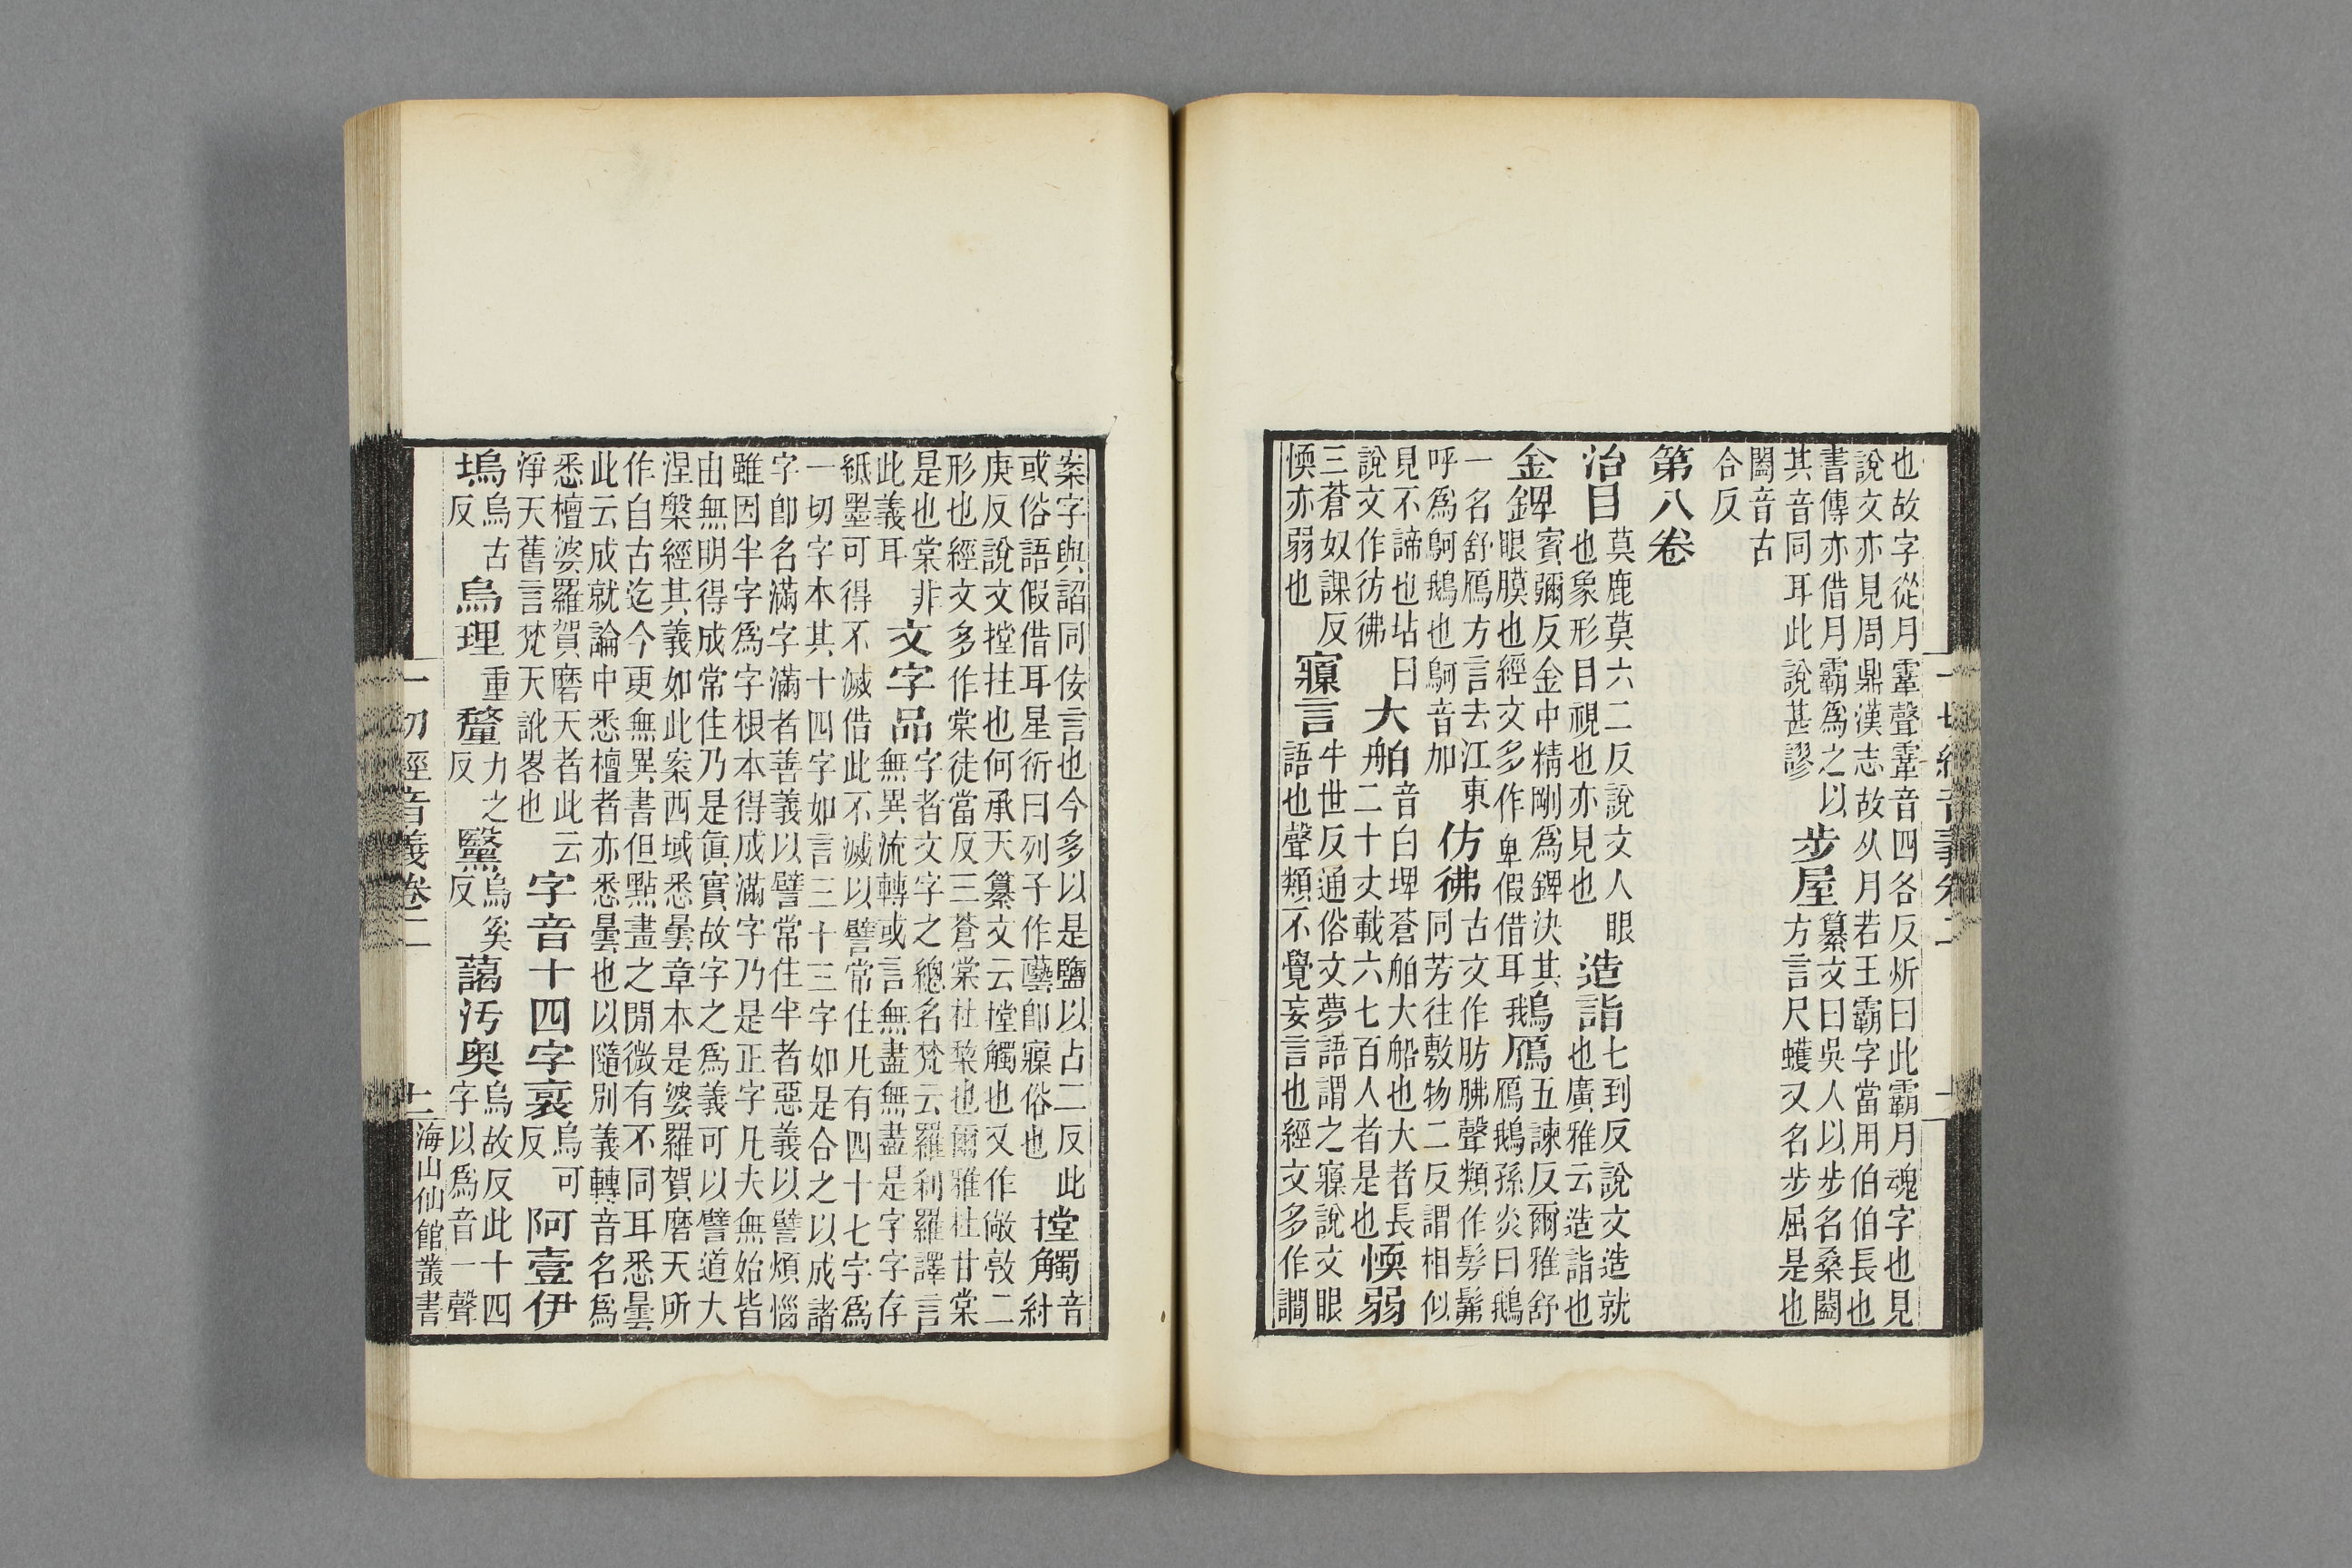 也故字從月䨣聲䨣音四各反炘曰此霸月魂字也見
說文亦見周鼎漢志故从月若王霸字當用伯伯長也
書傳亦借月霸為之以其音同耳此說甚謬 步屋 纂文曰吳人以步名桑闔方言尺蠖又名步屈是也
闔音古合反
第八卷
治目 莫鹿莫六二反說文人眼也象形目視也亦見也 造詣 七到反說文造就也廣雅云造詣也
金錍 賓彌反金中精剛為錍決其眼膜也經文多作卑假借耳 鵝鴈 五諫反爾雅舒鴈鵝孫炎曰鵝
一名舒鴈方言去江東呼為鴚鵝也鴚音加 仿彿 古文作肪胇聲類作髣髴同芳往敷物二反謂相似
見不諦也坫曰說文作彷彿 大舶 音白埤蒼舶大船也大者長二十丈載六七百人者是也 愞弱
三蒼奴課反愞亦弱也 寱言 牛世反通俗文夢語謂之寱說文眠語也聲類不覺妄言也經文多作讇
案字與讇同佞言也今多以是鹽以占二反此或俗語假借耳星衍曰列子作即寱俗也 摚觸 音紂
庚反說文摚拄也何承天纂文云摚觸也又作二
形也經文多作棠徒當反三蒼棠杜棃也爾雅杜甘棠
是也棠非此義耳 文字品 字者文字之總名梵云羅剎羅譯言無異流轉或言無盡無盡是字字存
紙墨可得不滅借此不滅以譬常住凡有四十七字為
一切字本其十四字如言三十三字如是合之以成諸
字即名滿字滿者善義以譬常住半者惡義以譬煩惱
雖因半字為字根本得成滿字乃是正字凡夫無始皆
由無明得成常住乃是真實故字之為義可以譬道大
涅槃經其義如此案西域悉曇章本是婆羅賀磨天所
作自古迄今更無異書但點畫之閒微有不同耳悉曇
此云成就論中悉檀者亦悉曇也以隨別義轉音名為
悉檀婆羅賀磨天者此云淨天舊言梵天訛畧也 字音十四字 裒 烏可反 阿壹伊
塢 烏古反 烏理 重 釐 力之反 黳 烏奚反 藹汚奥 烏故反此十四字以為音一聲
一切經音義卷二
十二
海山仙館叢書